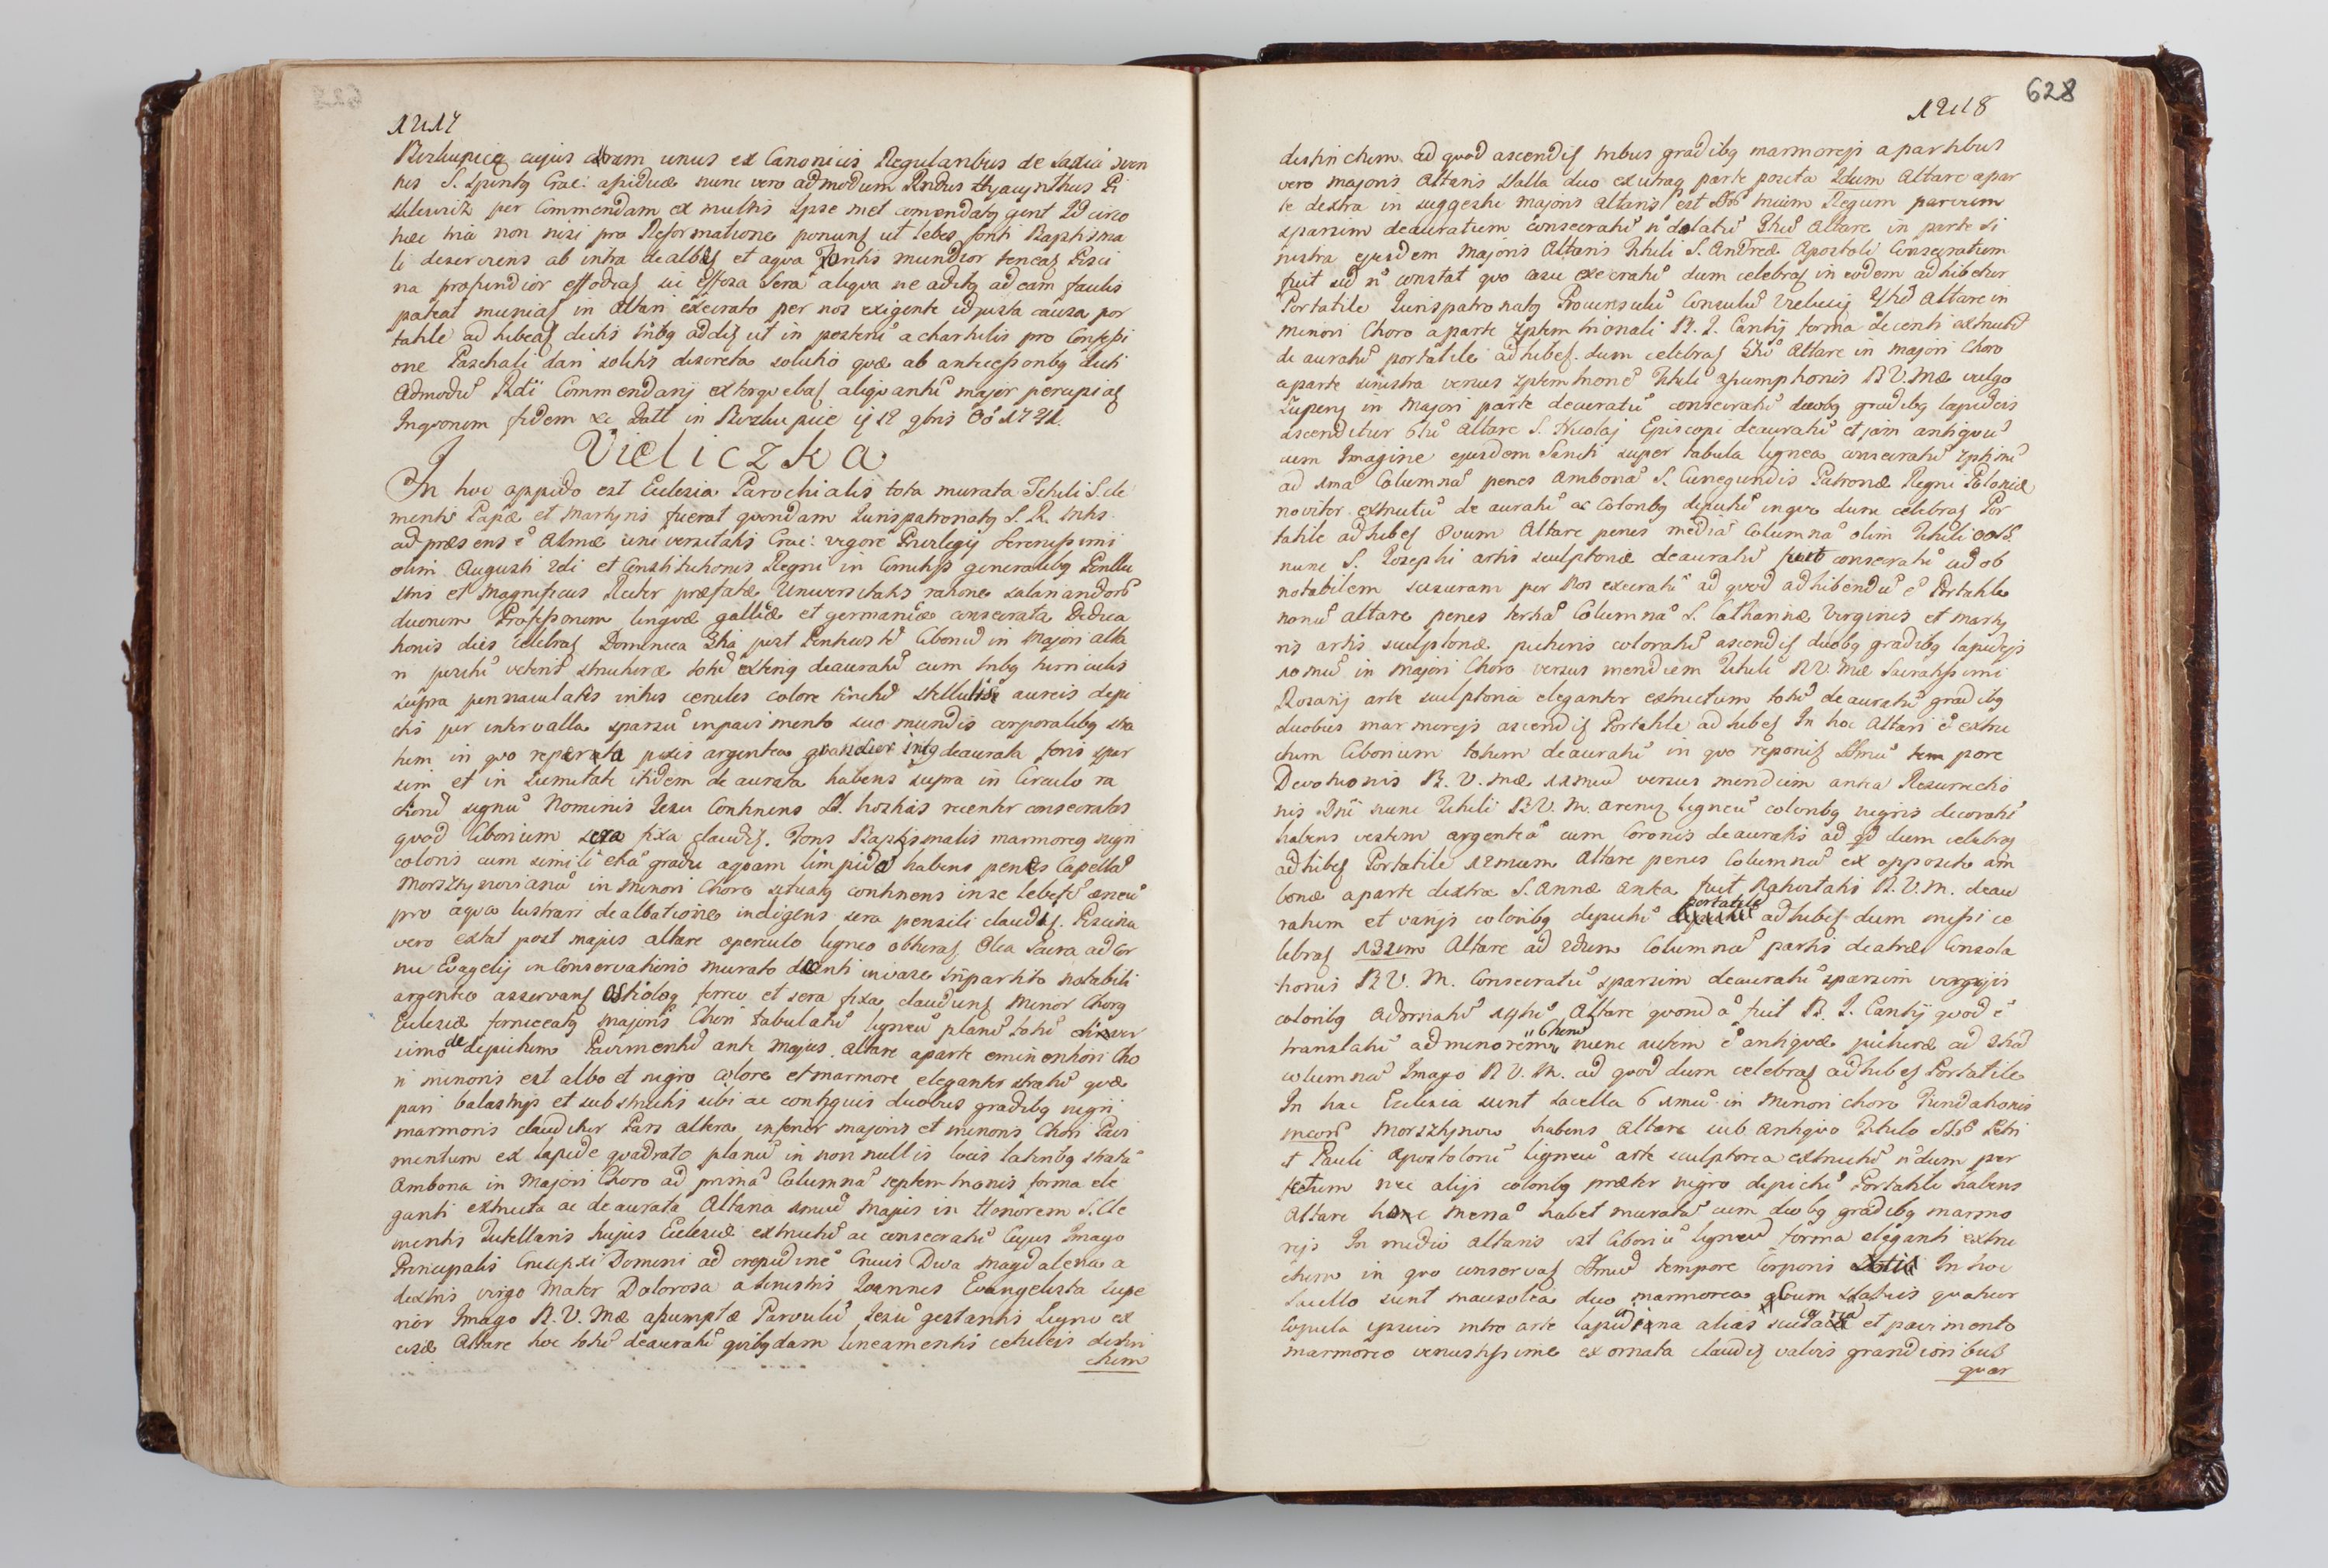 1217
Bierzkupice cujus curam unus ex Canonicis Regularibus de Saxia
tus S. Spiritq Crac: assiduae nunc vero admodum Rndus Hyacynthus
per Commendam ex multis Ipse met comendatq gerit Id circo
haec tria non nisi pro Reformatione ponunt ut lebes fonti Baptisma
li deserviens ab intra dealbet et aqva Fontis mundior teneat Pisci
na profundior effodiat sic effossa sera aliqva ne aditq ad eam facilis
pateat muniat in Altari execrato per nos exigente id justa causa por
tatile adhibeat dictis tribq addit ut in posterum a chartulis pro Confessi
one Paschali dari solitis discreta solutio quae ab antecessoribq dicti
Admodum Rdi Commendarij extorqvebat aliqvantum major percipiat
Inqvorum fidem &c Datt in Bierzkupice
Vieliczka
In hoc oppido est Ecclesia Parochialis tota murata Tituli S. Cle
mentis Papae et Martyris fuerat qvondam Jurispatronatq S. R. Mtis
ad praesens e Almae Universitatis Crac: vigore Privilegij Serenissimi
olim Augusti 2di et Constitutionis Regni in Comitijs generalibq
et Magnificus Rector praefatae Universitatis ratione salariandorum
duorum Professorum linguae gallicae et germanicae consecrata Dedica
tionis dies celebrat Dominica 3tia post Pentecosten Ciborium in Majori alta
ri positum veteris structurae totum extering deauratum cum tribq turriculis
supra pinnaculatis intus ceruleo colore tinctum stellulis aureis depi
ctis per intervalla sparsum in pavimento suo mundis corporalibq stra
tum in quo reperta pixis argentea grandior intq deaurata foris spar
sim et in sumitate itidem deaurata habens supra in Circulo ra
diorum signum Nominis Jesu Continens St. hostias recenter consecratas
qvod Ciborium sera fixa claudit. Fons Baptismalis marmoreq nigri
coloris cum simili etiam gradu aqvam limpidam habens penes Capellam
Morsztynovianam in Minori Choro situatq continens in se lebetem aeneum
pro aqva lustrari dealbatione indigens sera pensili claudit. Piscina
vero extat post majus altare operculo ligneo obturat Olea Sacra ad Cor
nu Evagelij in Conservatorio murato decenti in vase tripartito notabili
argenteo asservant Ostiolog ferreo et sera fixa cladunt Minor Chorq
Ecclesiae fornicatq majoris Chori tabulatum ligneum planum totum
simo depictum Pavimentum ante Majus altare a parte eminentiori Cho
ri minoris est albo et nigro colore et marmore eleganter stratum quae
pari balastrijs et substructis sibi ac contiguis duobus gradibq nigri
marmoris clauditur Pars altera inferior majoris et minoris Chori Pavi
mentum ex lapide qvadrato planum in non nullis locis lateribq stratum
Ambona in Majori Choro ad primam Columnam septemtrionis forma ele
ganti extructa ac deaurata Altaria 1mum Majus in Honorem S. Cle
mentis Tutellaris hujus Ecclesiae extructum ac consecratum Cujus Imago
Principalis Crucifixi Domini ad crepidinem Crucis Diva Magdalena a
dextris virgo Mater Dolorosa a sinistris Joannes Evangelista supe
rior Imago B. V. Mae assumptae Parvulum Jesum gestantis Ligno ex
cisae Altare hoc totum deauratum qvibqdam lineamentis distin
ctum
628
1218
distinctum ad qvod ascendit tribus gradibq marmoreis a partibus
vero majoris Altaris stalla duo ex utraq parte posita 2dum Altare a par
te dextra in suggestu majoris altaris est Stor trium Regum parvum
sparsim deauratum consecratum n dotatum 3tium Altare in parte si
nistra ejusdem Majoris Altaris Tituli S. Andreae Apostoli Consecratum
fuit sed n constat qvo casu execratum dum celebrat in eodem adhibetur
Portatile Jurispatronatq Proconsulum Consulum Vieliciq 4tum Altare in
minori Choro a parte 7ptemtrionali B. J. Cantij forma decenti extructum
deauratum portatile adhibet dum celebrat 5tum Altare in majori Choro
a parte sinistra versus 7ptemtrionem Tituli Assumptionis B V. Mae vulgo
Zupenq in Majori parte deauratum consecratum duobq gradibq lapideis
ascenditur 6tum Altare S. Nicolaj Episcopi deauratum et jam antiquum
cum Imagine ejusdem Sancti super tabula lignea consecratum 7ptimum
ad 1mam Columnam penes Ambonam S. Cunegundis Patronae Regni Poloniae
noviter extructum deauratum ac Coloribq depictum in qvo dum celebrat Por
tatile adhibet 8vum Altare penes mediam Columnam olim Tituli OOSS.
nunc S. Josephi artis sculptoriae deauratum fuit consecratum sed ob
notabilem scissuram per Nos execratum ad qvod adhibendum e Portatile
nonum altare penes tertiam Columnam S. Catharinae Virginis et Marty
ris artis sculptoriae picturis coloratum ascendit duobq gradibq lapideis
10mum in majori Choro versus meridiem Tituli B V. Mae Sacratissimi
Rosarij arte sculptoria eleganter extructum totum deauratum gradibq
duobus marmoreis ascendit Portatile adhibet In hoc Altari e extru
ctum Ciborium totum deauratum in qvo reponit Ssmum tempore
Devotionis B. V. Mae 11mum versus meridiem antea Resurrectio
nis Dni nunc Tituli B V. M. ligneum coloribq nigris decoratum
habens vestem argenteam cum Coronis deauratis ad qd dum celebrat
adhibet Portatile 12mum Altare penes Columnam ex opposito am
bonae a parte dextra S. Annae antea fuit Nativitatis B. V. M. deau
ratum et varijs coloribq depictum portatile adhibet dum missae ce
lebrat 13tium Altare ad 2dum Columnam partis dextrae Consola
tionis B V. M. Consecratum sparsim deauratum sparsim varijs
coloribq Adornatum 14tum Altare qvondam fuit B. J. Cantij qvod e
translatum ad minorem Chorum nunc autem e antiqvae picturae ad 3tiam
columnam Imago B V. M. ad qvod dum celebrat adhibet Portatile
In hac Ecclesia sunt Sacella 6 1mum in Minori choro Fundationis
Morsztynow habens Altare sub antiqvo Titulo Stor Petri
et Pauli Apostolorum ligneum arte sculptorea extructum n dum per
fectum nec alijs coloribq praeter nigro depictum Portatile habens
Altare hoc mensam habet muratam cum duobq gradibq marmo
reis In medio altaris est Ciborium ligneum forma eleganti extru
ctum in quo conservat Ssmum tempore Corporis Xsti In hoc
Sacello sunt mausolea duo marmorea cum statuis quatuor
Cupula ipsius intro arte lapidiana alias et pavimento
marmoreo venustissime exornata claudit valvis grandioribus
quar